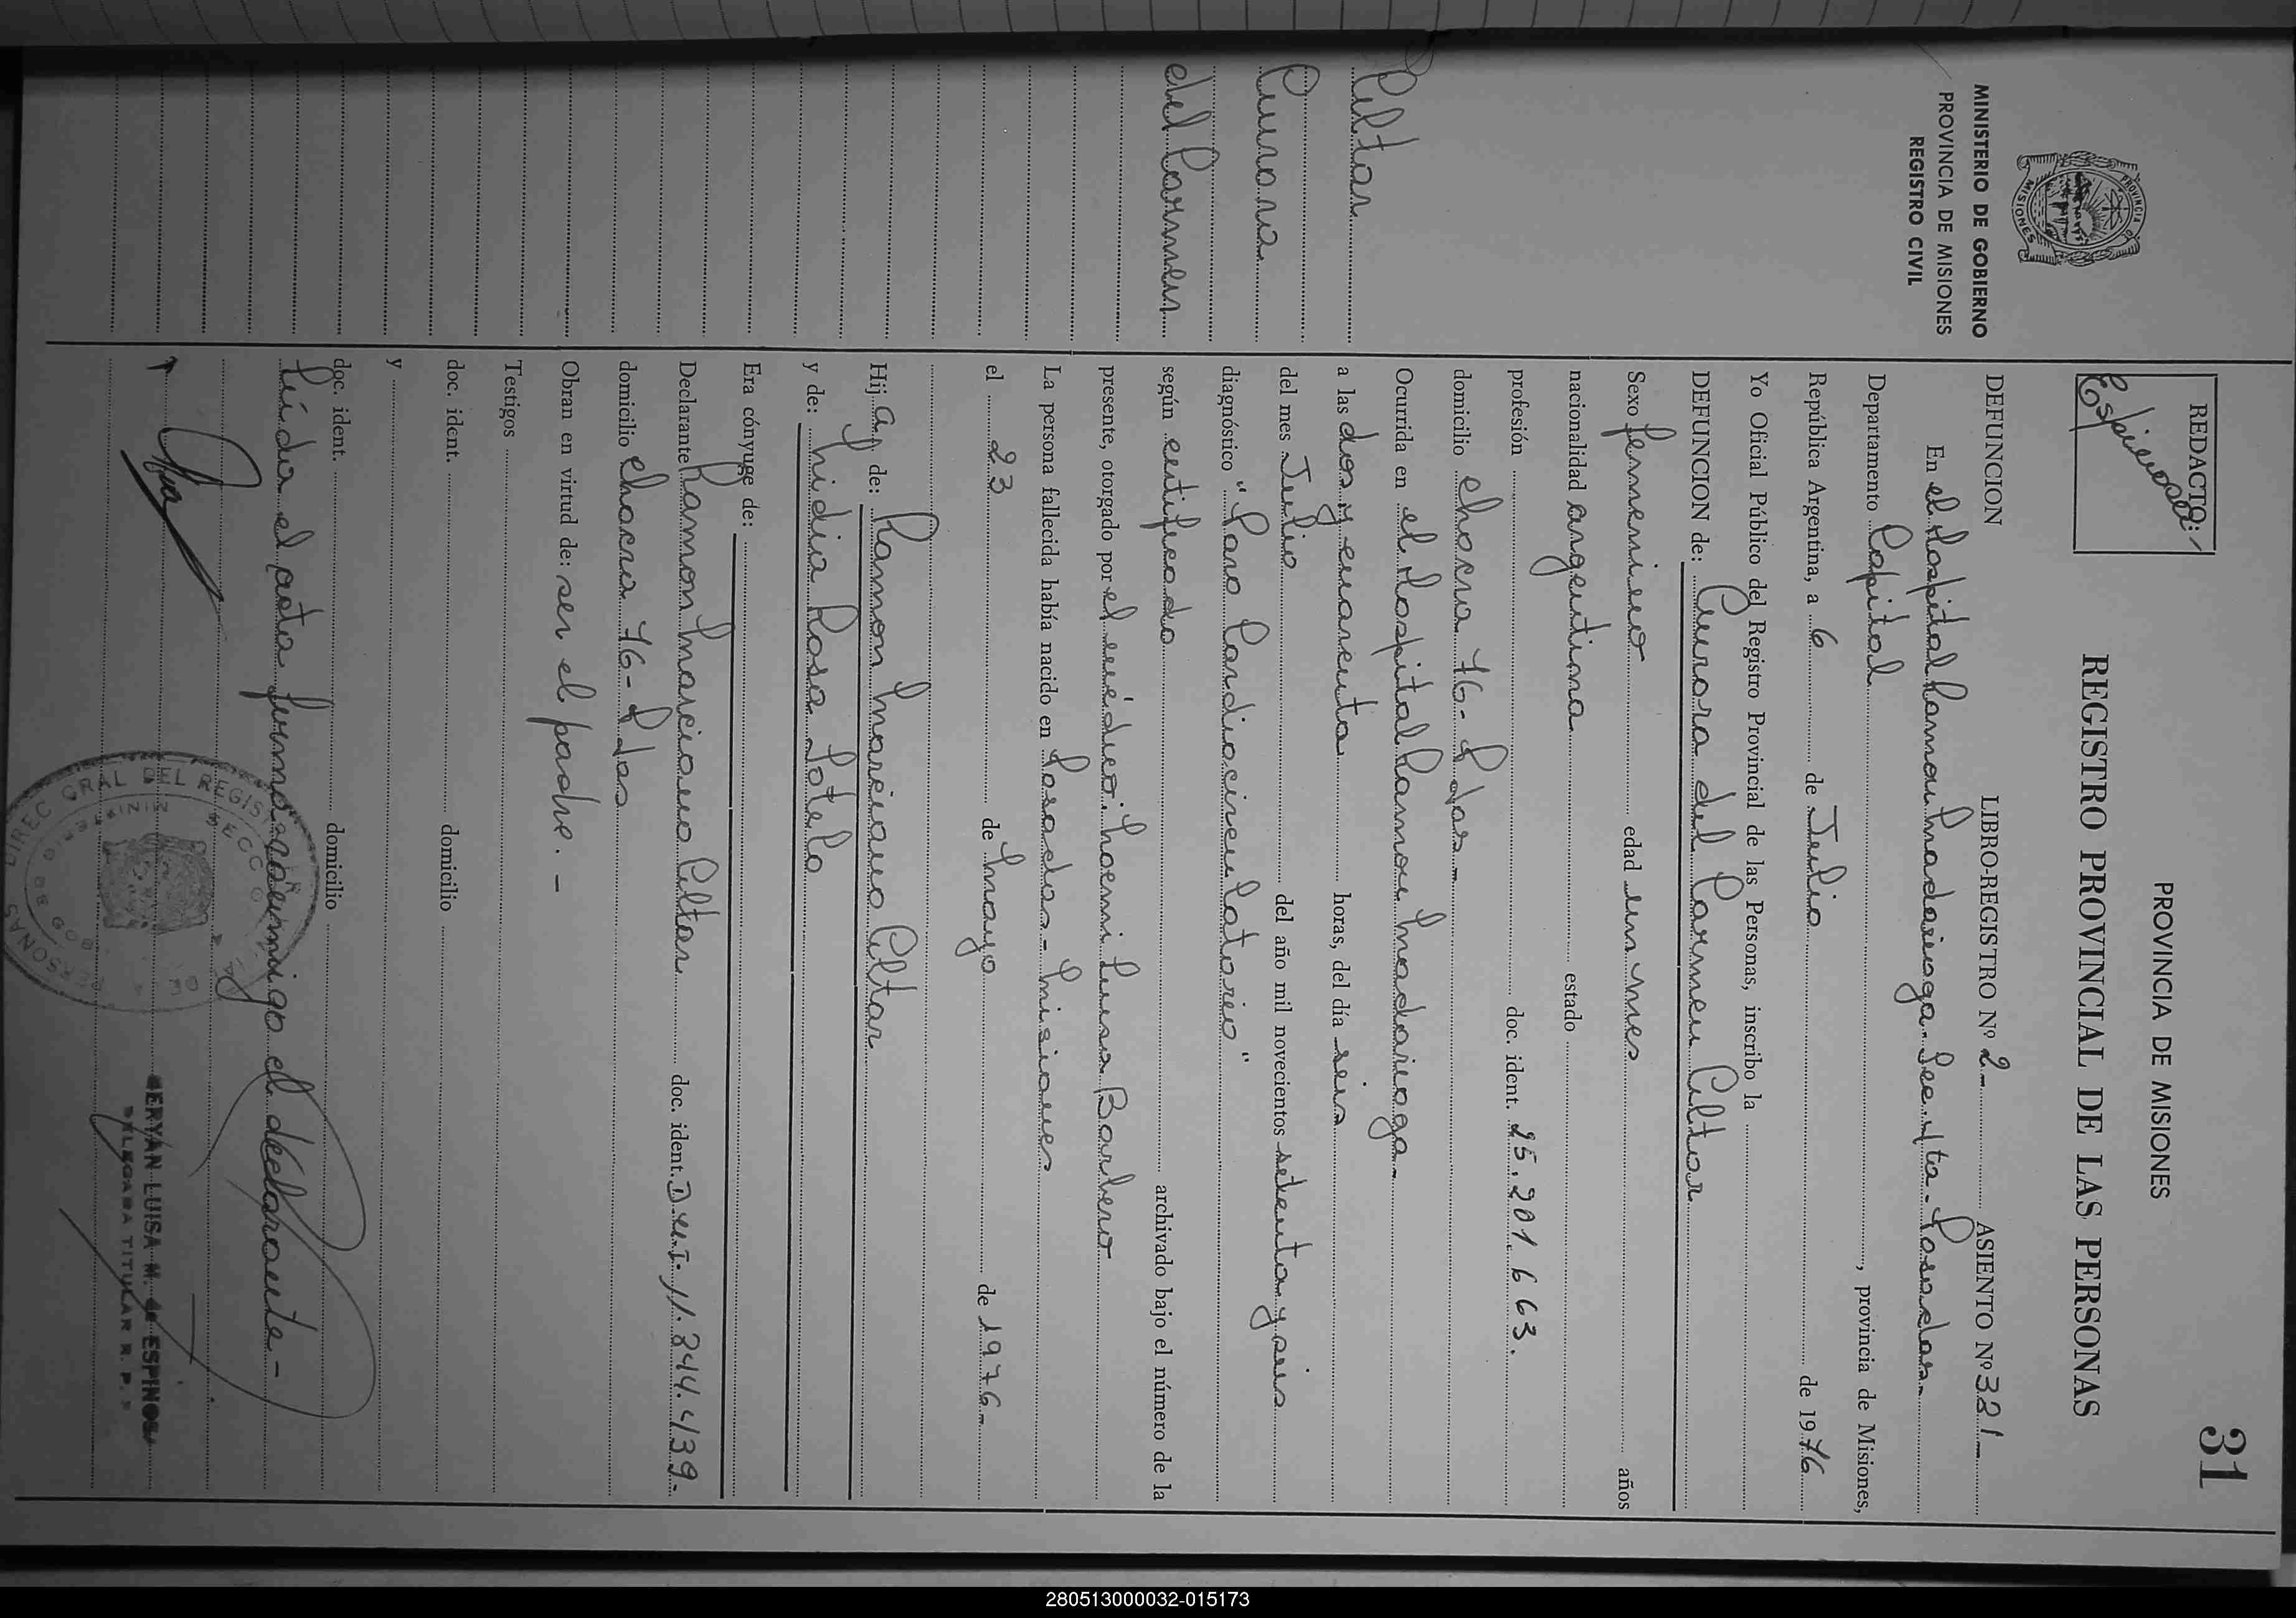 31
PROVINCIA DE MISIONES
REGISTRO PROVINCIAL DE LAS PERSONAS
REDACTO:
Espinosa
MINISTERIO DE GOBIERNO
PROVINCIA DE MISIONES
REGISTRO CIVIL
DEFUNCION LIBRO-REGISTRO Nº 2.- ASIENTO Nº 321.-
En el Hospital Ramon Madariaga. Secc. 4ta. Posadas.-
Departamento Capital, provincia de Misiones,
República Argentina, a 6 de Julio de 1976
Yo Oficial Público del Registro Provincial de las Personas, inscribo la
DEFUNCION de: Aurora del Carmen
Sexo femenino edad un mes años
nacionalidad argentina estado
profesión doc. ident. 25.201.663.
domicilio chacra 76- Pdas.-
Ocurrida en el Hospital Ramon Madariaga.-
a las dos y cuarenta horas, del día seis
del mes Julio del año mil novecientos setenta y seis
diagnóstico "Paro Cardiocirculatorio"
según certificado archivado bajo el número de la
presente, otorgado por el médico: Noemi Luisa Barbero
La persona fallecida había nacido en Posadas - Misiones
el 23 de Mayo de 1976.-
Hij a de: Ramon Marciano
y de: Nidia Rosa Sotelo
Era cónyuge de:
Declarante Ramon Marciano doc. ident. D.N.I. 11.244.439.-
domicilio chacra 76- Pdas
Obran en virtud de: ser el padre.-
Testigos
doc. ident. domicilio
y
doc. ident. domicilio
Leída el acta firma conmigo el declarante-
Aurora
del Carmen
MERYAN LUISA M. de ESPINOSA
DELEGADA TITULAR R. P. P.
280513000032-015173